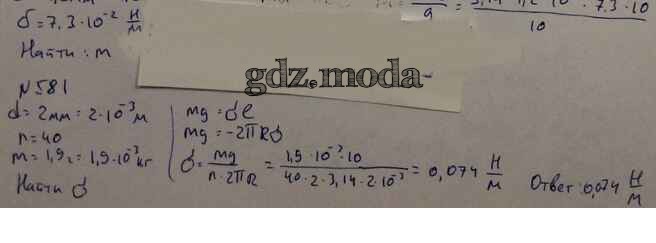 σ = 7,3 · 10⁻² Н/м
Найти: m
gdz.moda
N 581
d = 2мм = 2 · 10⁻³ м
n = 40
m = 1,9г = 1,9 · 10⁻³ кг
Найти σ
mg = σl
mg = -2πRσ
σ = mg / n · 2πR = 1,9 · 10⁻³ · 10 / 40 · 2 · 3,14 · 2 · 10⁻³ = 0,074 Н/м
Ответ: 0,074 Н/м